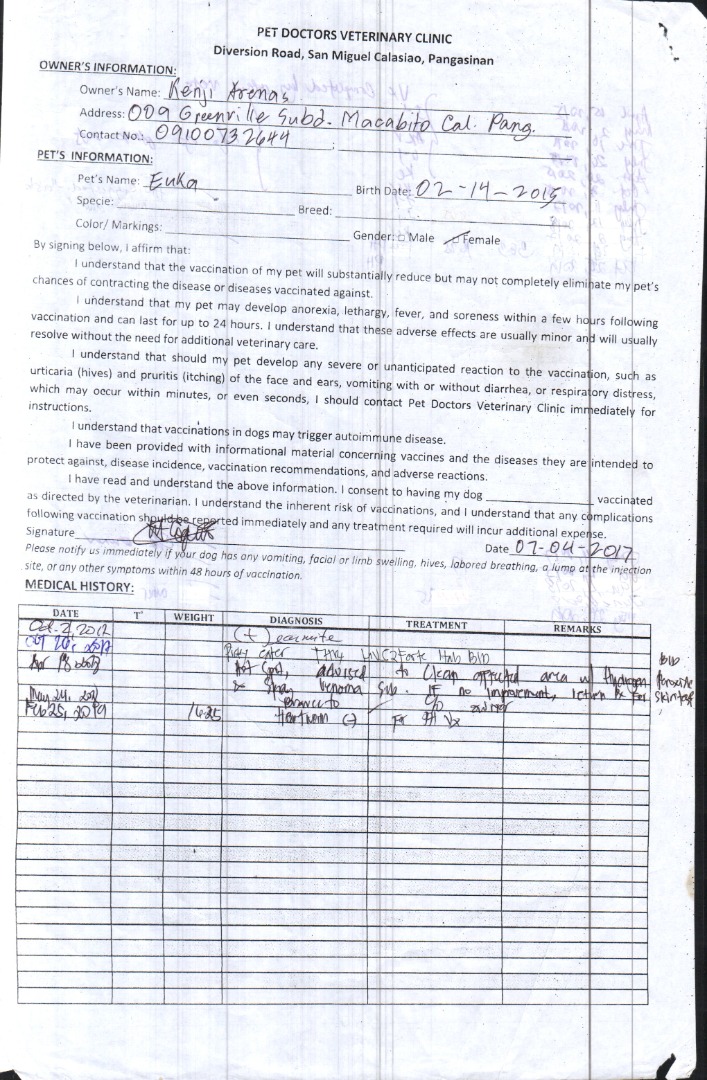 PET DOCTORS VETERINARY CLINIC
Diversion Road, San Miguel Calasiao, Pangasinan
OWNER'S INFORMATION:
Owner's Name: Kenji Arenas
Address: 009 Greenville Subd. Macabito Cal. Pang.
Contact No.: 09100732644
PET'S INFORMATION:
Pet's Name: Euka Birth Date: 02-14-2015
Specie: Breed:
Color/ Markings: Gender: Male Female
By signing below, I affirm that:
I understand that the vaccination of my pet will substantially reduce but may not completely eliminate my pet's
chances of contracting the disease or diseases vaccinated against.
I understand that my pet may develop anorexia, lethargy, fever, and soreness within a few hours following
vaccination and can last for up to 24 hours. I understand that these adverse effects are usually minor and will usually
resolve without the need for additional veterinary care.
I understand that should my pet develop any severe or unanticipated reaction to the vaccination, such as
urticaria (hives) and pruritis (itching) of the face and ears, vomiting with or without diarrhea, or respiratory distress,
which may occur within minutes, or even seconds, I should contact Pet Doctors Veterinary Clinic immediately for
instructions.
I understand that vaccinations in dogs may trigger autoimmune disease.
I have been provided with informational material concerning vaccines and the diseases they are intended to
protect against, disease incidence, vaccination recommendations, and adverse reactions.
I have read and understand the above information. I consent to having my dog vaccinated
as directed by the veterinarian. I understand the inherent risk of vaccinations, and I understand that any complications
following vaccination should be reported immediately and any treatment required will incur additional expense.
Signature Date 07-04-2017
Please notify us immediately if your dog has any vomiting, facial or limb swelling, hives, labored breathing, a lump at the injection
site, or any other symptoms within 48 hours of vaccination.
MEDICAL HISTORY:
DATE T° WEIGHT DIAGNOSIS TREATMENT REMARKS
Oct. 2, 2017 (+) earmite
BID
advised to clean affected area w/ Hydrogen Peroxide
& Spray IF no improvement, for skin
Feb 25, 2019 Heartworm (-) For